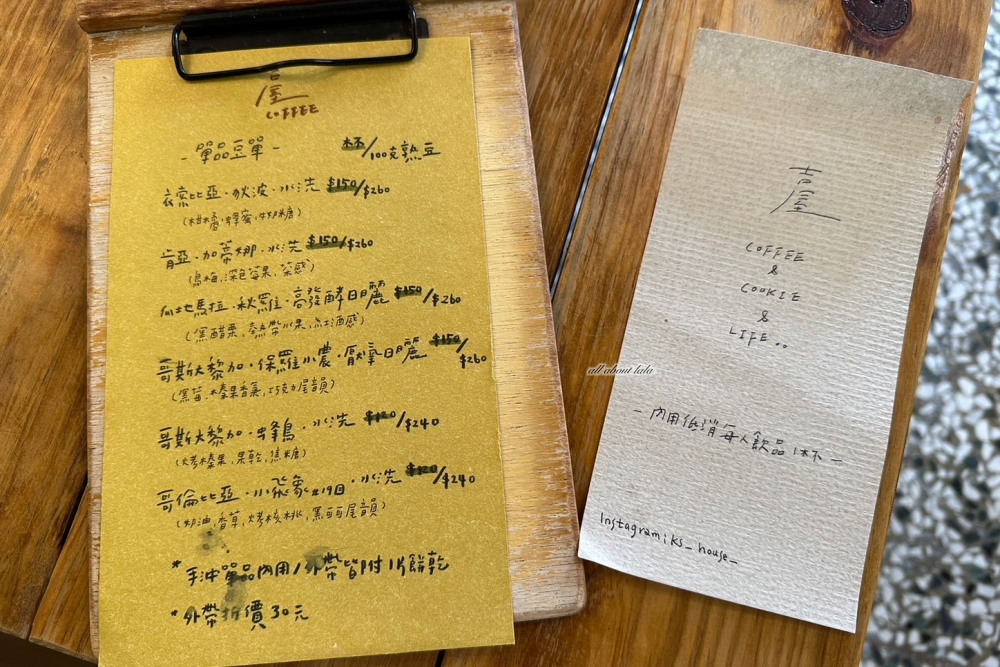 吉屋
COFFEE
-單品豆單-
杯/100克熟豆
衣索比亞·狄波·水洗 $150/$260
(柑橘,蜂蜜,牛奶糖)
肯亞·加蒂娜·水洗 $150/$260
(烏梅,深色莓果,茶感)
瓜地馬拉·秋羅·高發酵日曬 $150/$260
(黑醋栗,熱帶水果,紅酒感)
哥斯大黎加·保羅小農·厭氧日曬 $150/$260
(黑莓,榛果香氣,巧克力尾韻)
哥斯大黎加·蜂鳥·水洗 $120/$240
(烤榛果,果乾,焦糖)
哥倫比亞·小飛象#19目·水洗 $120/$240
(奶油,香草,烤核桃,黑豆尾韻)
*手沖單品內用/外帶皆附1片餅乾
*外帶折價30元
吉屋
COFFEE
&
COOKIE
&
LIFE..
-內用低消每人飲品1杯-
Instagram:ks_house_
all about lala